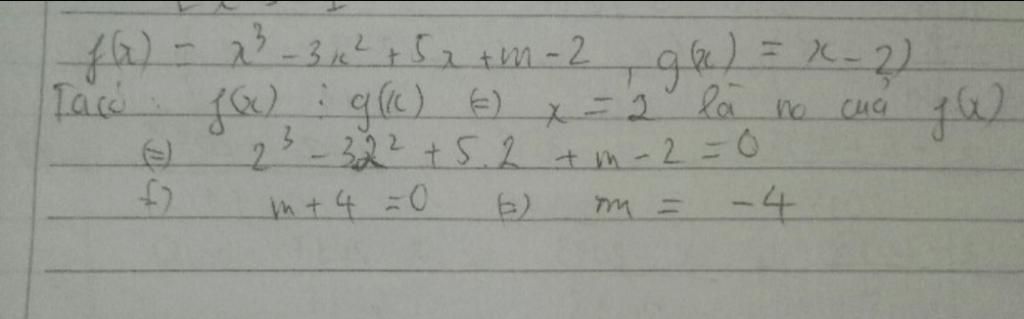 f(x) = x³ - 3x² + 5x + m - 2, g(x) = x - 2)
Ta có: f(x) ⋮ g(x) (=) x = 2 là no của f(x)
(=) 2³ - 3.2² + 5.2 + m - 2 = 0
(=) m + 4 = 0 (=) m = -4